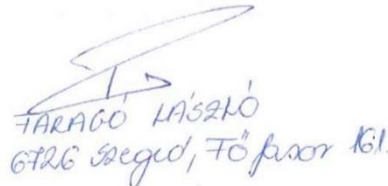 FARAGÓ LÁSZLÓ
6726 Szeged, Fő fasor 161.